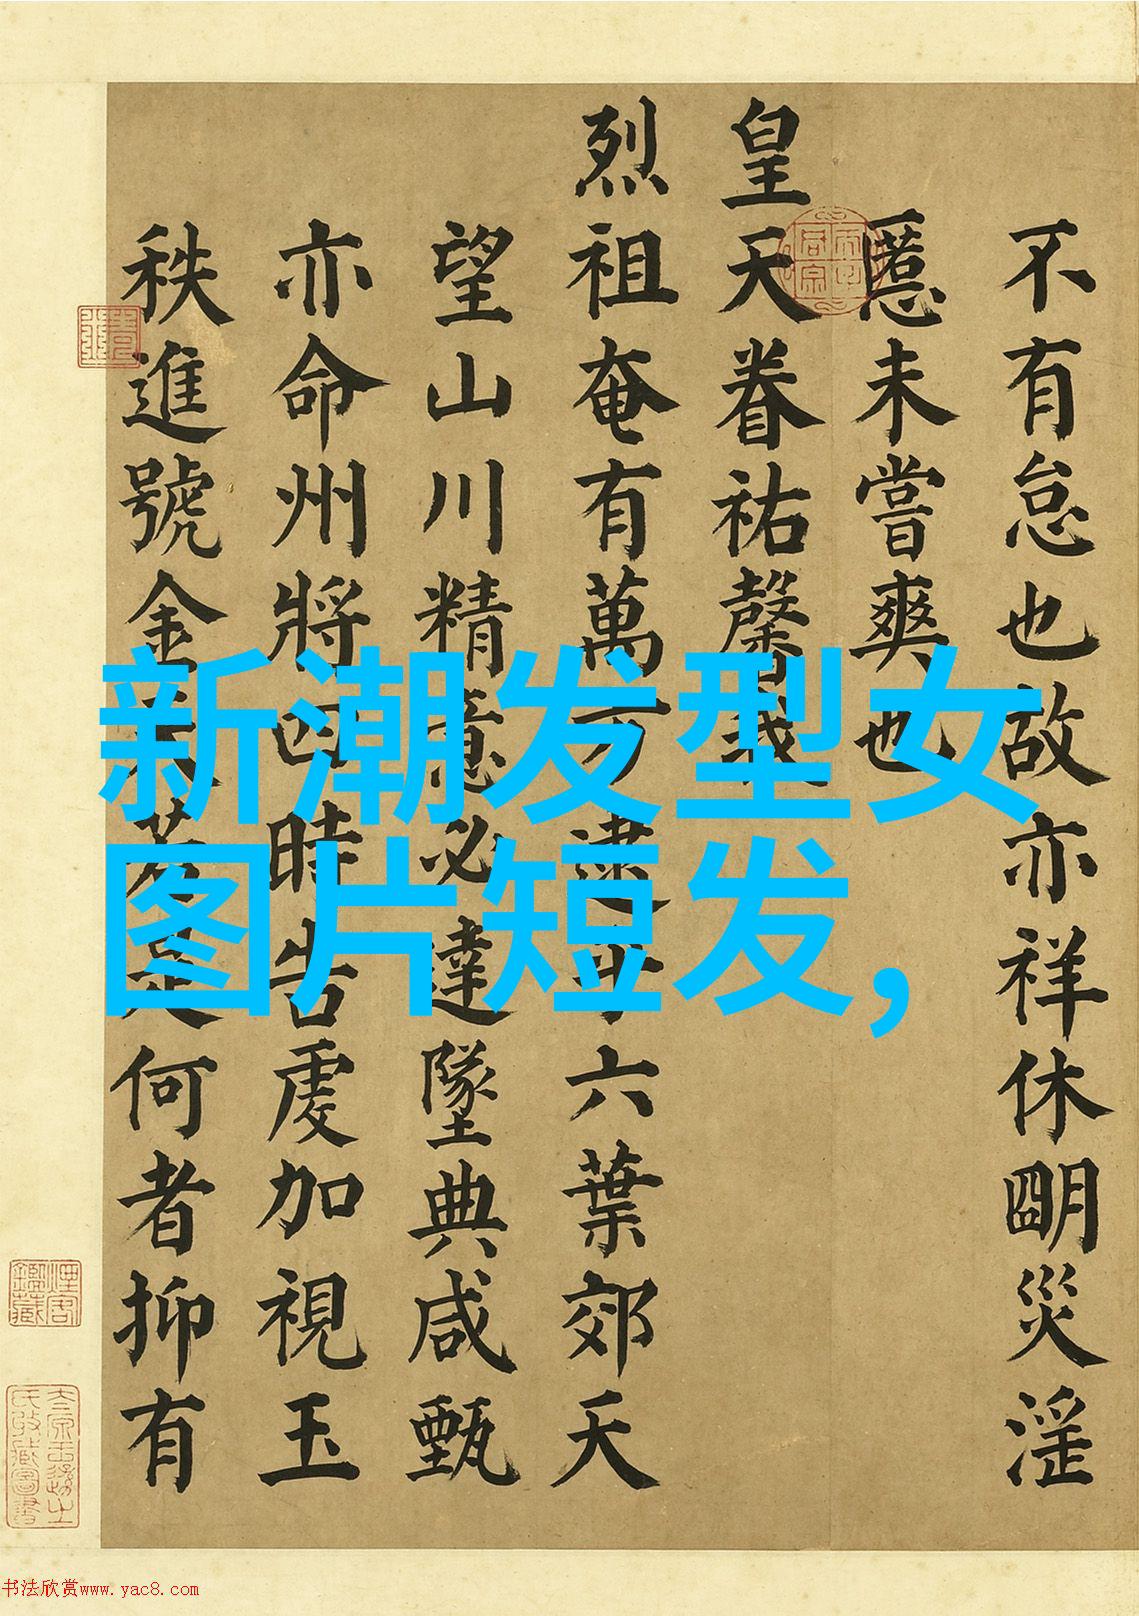 不有怠也故亦祥休朙災淫
慝未嘗爽也
皇天眷祐馨我
烈祖奄有萬方逮乎六葉郊天
望山川精意必達墜典咸甄
亦命州將四時告虔加視玉
秩進號金天若是何者抑有
新潮发型女
图片短发,
书法欣赏www.yac8.com